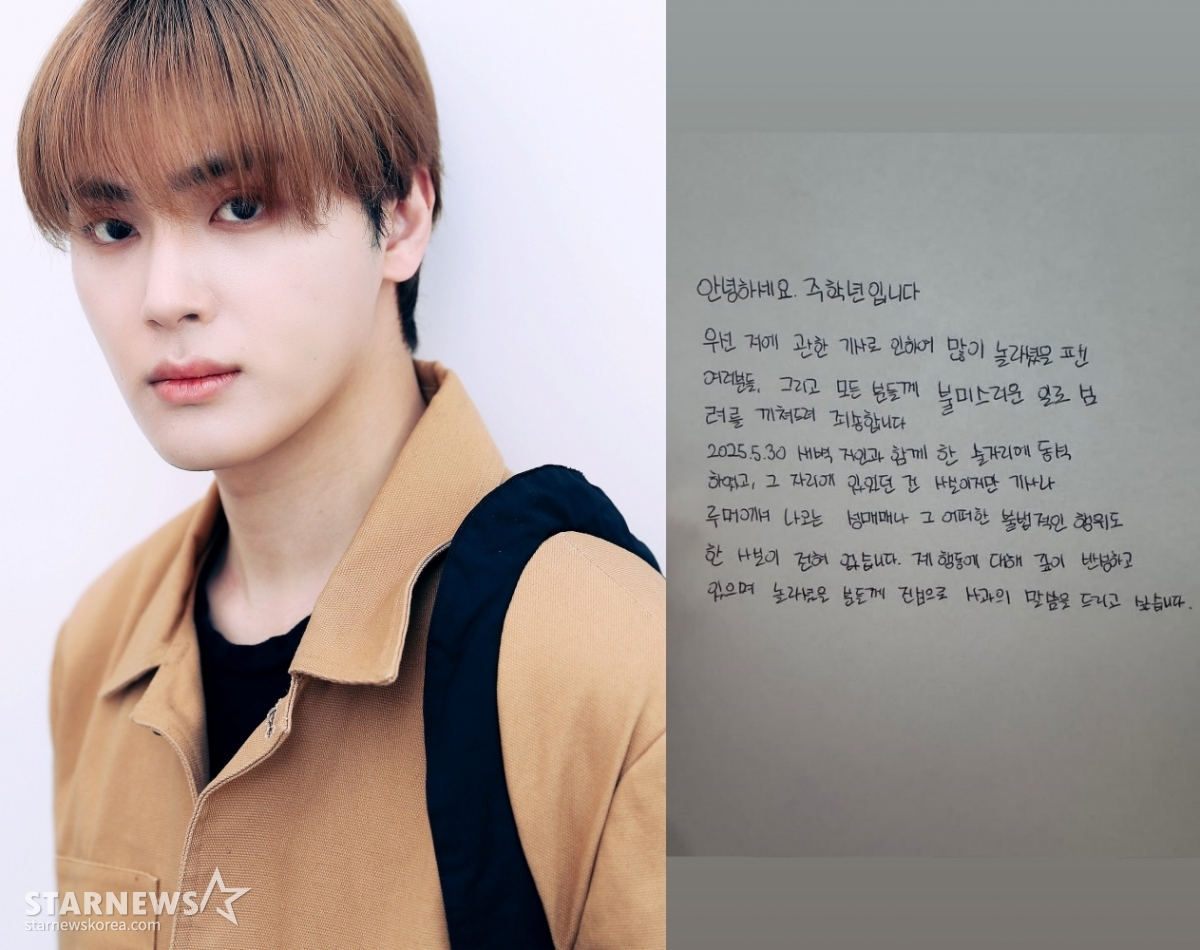 안녕하세요. 주학년입니다
우선 저에 관한 기사로 인하여 많이 놀라셨을 팬
여러분들, 그리고 모든 분들께 불미스러운 일로 심
려를 끼쳐드려 죄송합니다
2025.5.30 새벽 지인과 함께 한 술자리에 동석
하였고, 그 자리에 있었던 건 사실이지만 기사나
루머에서 나오는 성매매나 그 어떠한 불법적인 행위도
한 사실이 전혀 없습니다. 제 행동에 대해 깊이 반성하고
있으며 놀라셨을 분들께 진심으로 사과의 말씀을 드리고 싶습니다.
STARNEWS
starnewskorea.com